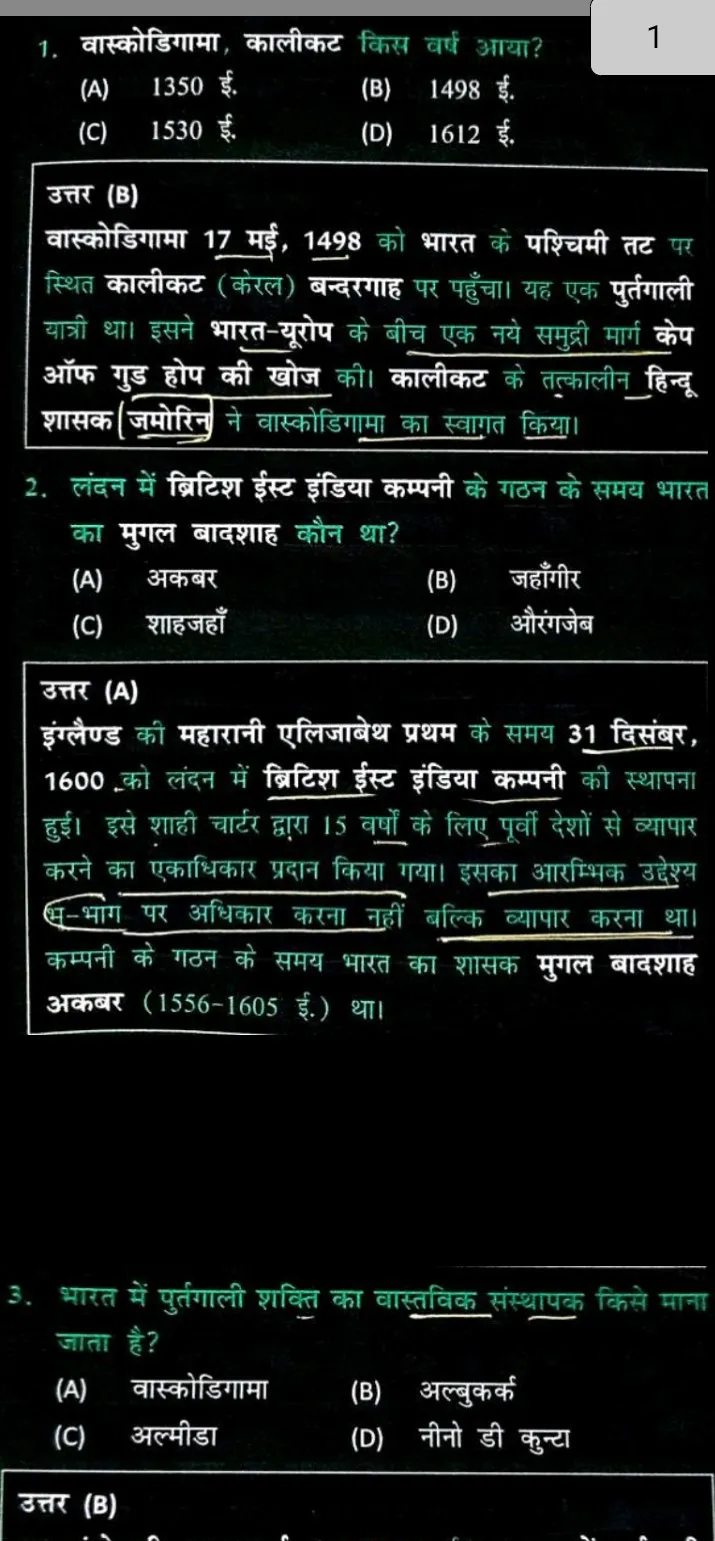 1
1. वास्कोडिगामा, कालीकट किस वर्ष आया?
(A) 1350 ई. (B) 1498 ई.
(C) 1530 ई. (D) 1612 ई.
उत्तर (B)
वास्कोडिगामा 17 मई, 1498 को भारत के पश्चिमी तट पर
स्थित कालीकट (केरल) बन्दरगाह पर पहुँचा। यह एक पुर्तगाली
यात्री था। इसने भारत-यूरोप के बीच एक नये समुद्री मार्ग केप
ऑफ गुड होप की खोज की। कालीकट के तत्कालीन हिन्दू
शासक जमोरिन ने वास्कोडिगामा का स्वागत किया।
2. लंदन में ब्रिटिश ईस्ट इंडिया कम्पनी के गठन के समय भारत
का मुगल बादशाह कौन था?
(A) अकबर (B) जहाँगीर
(C) शाहजहाँ (D) औरंगजेब
उत्तर (A)
इंग्लैण्ड की महारानी एलिजाबेथ प्रथम के समय 31 दिसंबर,
1600 को लंदन में ब्रिटिश ईस्ट इंडिया कम्पनी की स्थापना
हुई। इसे शाही चार्टर द्वारा 15 वर्षों के लिए पूर्वी देशों से व्यापार
करने का एकाधिकार प्रदान किया गया। इसका आरम्भिक उद्देश्य
भू-भाग पर अधिकार करना नहीं बल्कि व्यापार करना था।
कम्पनी के गठन के समय भारत का शासक मुगल बादशाह
अकबर (1556-1605 ई.) था।
3. भारत में पुर्तगाली शक्ति का वास्तविक संस्थापक किसे माना
जाता है?
(A) वास्कोडिगामा (B) अल्बुकर्क
(C) अल्मीडा (D) नीनो डी कुन्टा
उत्तर (B)